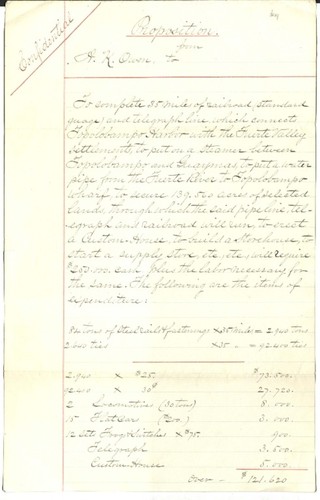 Confidential
Proposition
from
A. K. Owen to
To complete 35 miles of railroad, (standard
guage) and telegraph line which connects
Topolobampo Harbor with the Fuerte Valley
settlements; to put on a steamer between
Topolobampo and Guaymas; to put a water
pipe from the Fuerte River to Topolobampo
wharf; to secure 139,520 acres of selected
lands, through which the said pipe line, tele-
graph and railroad will run; to erect
a Custom-House; to build a Storehouse; to
start a supply store, etc, etc; will require
cash plus the labor necessary for
the same. The following are the items of
expenditure:
84 tons of Steel rails & fastenings X 35 miles = 2.940 tons
2.640 ties X 35 " = 92.400 ties
2.940 X $25. $73.500.
92.400 X 30¢ 27.720.
2 Locomotives (30 tons) 8.000.
15 Flat Cars ($200.) 3.000.
12 sets Frogs & Switches X $75. 900.
Telegraph 3.500.
Custom House 5.000.
Over — $121.620